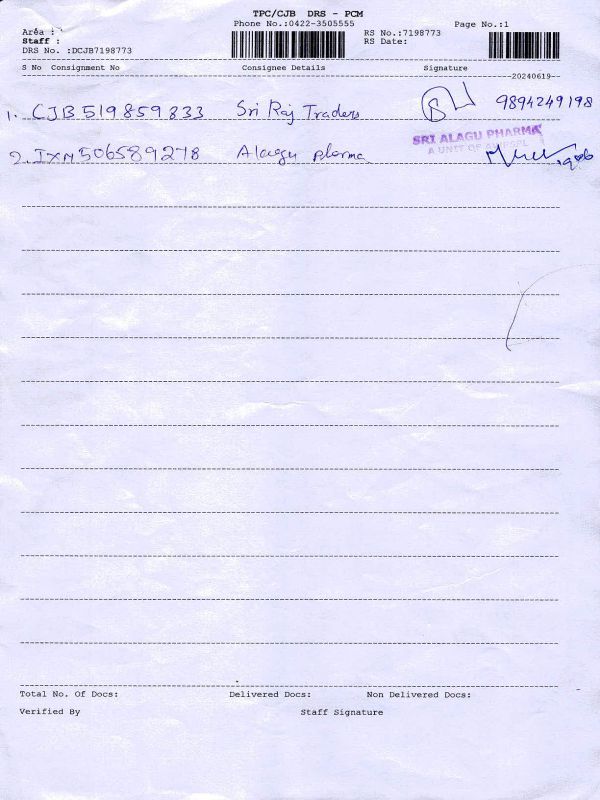 TPC/CJB DRS - PCM
Phone No.:0422-3505555
Page No.:1
Area :
RS No.:7198773
Staff :
RS Date:
DRS No. :DCJB7198773
S No Consignment No Consignee Details Signature
20240619
1. CJB519859833 Sri Raj Traders 9894249198
SRI ALAGU PHARMA
A UNIT OF
2. IXM506589278 Alagu pharma
Total No. Of Docs: Delivered Docs: Non Delivered Docs:
Verified By Staff Signature